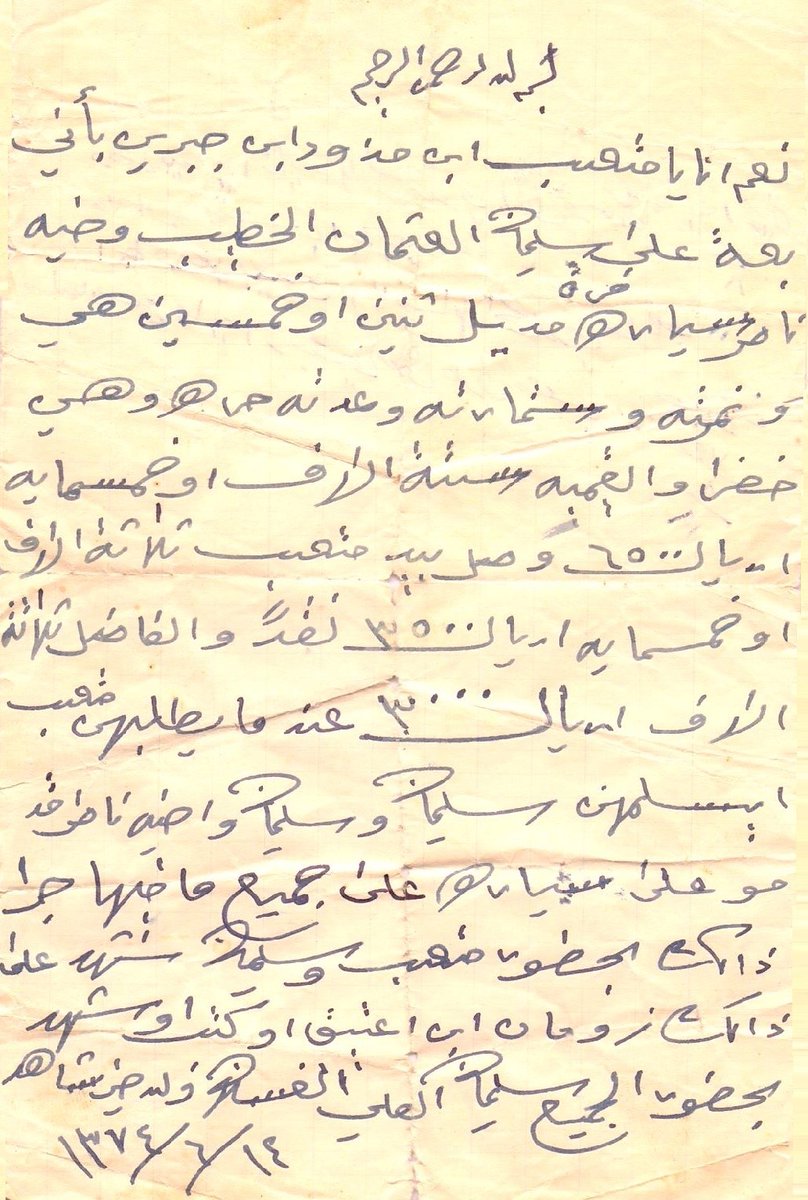 بسم الله الرحمن الرحيم
نعم انا يا متعب ابن ابن جبرين بأني
بعة على سليمان العثمان الخطيب وخيه
ناصر سياره فرة مديل ثنين او خمسين هي
و نمرته و ستمارته وعدته حمره وهي
خضرا والقيمه ستة الاف او خمسمايه
اريال ٦٥٠٠ وصل بيد متعب ثلاثة الاف
او خمسمايه اريال ٣٥٠٠ نقدً والفاضل ثلاثة
الاف اريال ٣٠٠٠ عند ما يطلبهن متعب
ايسلمهن سليمان وسليمان واخيه ناصر قد
مو على سياره على جميع ما فيها جرا
ذالك بحظور متعب وسليمان شهد على
ذالك زومان ابن اعتيق او كتب او شهد
بحظور الجميع سليمان العلي
١٣٧٤/٦/١٤